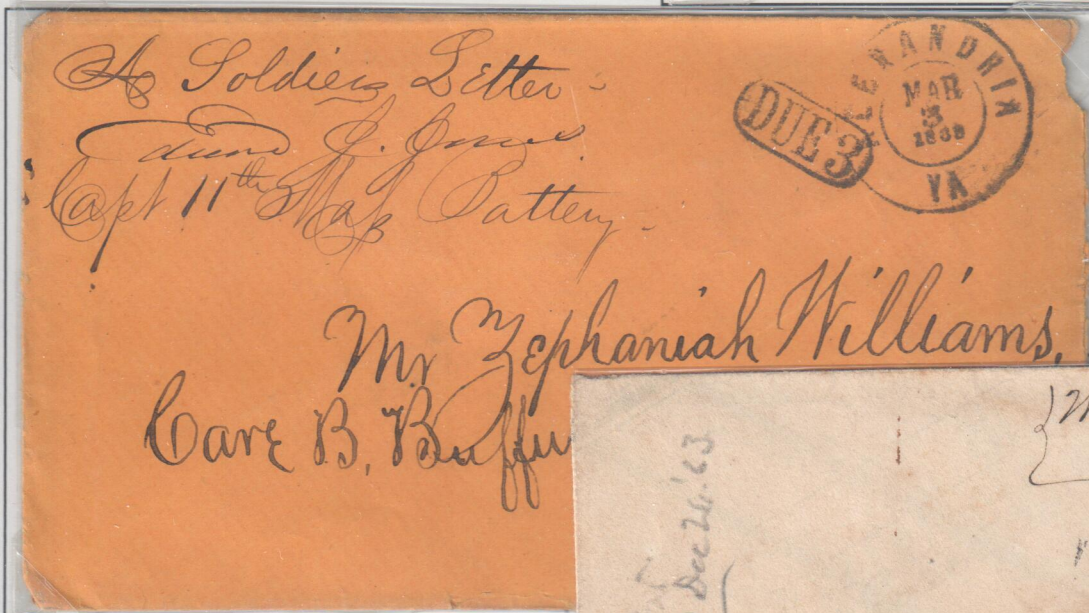 A Soldiers Letter
Edward J. Jones
Capt 11th Mass Battery
ALEXANDRIA
MAR
3
VA
DUE 3
Mr Zephaniah Williams,
Care B. Buffu
Dec 26. '63